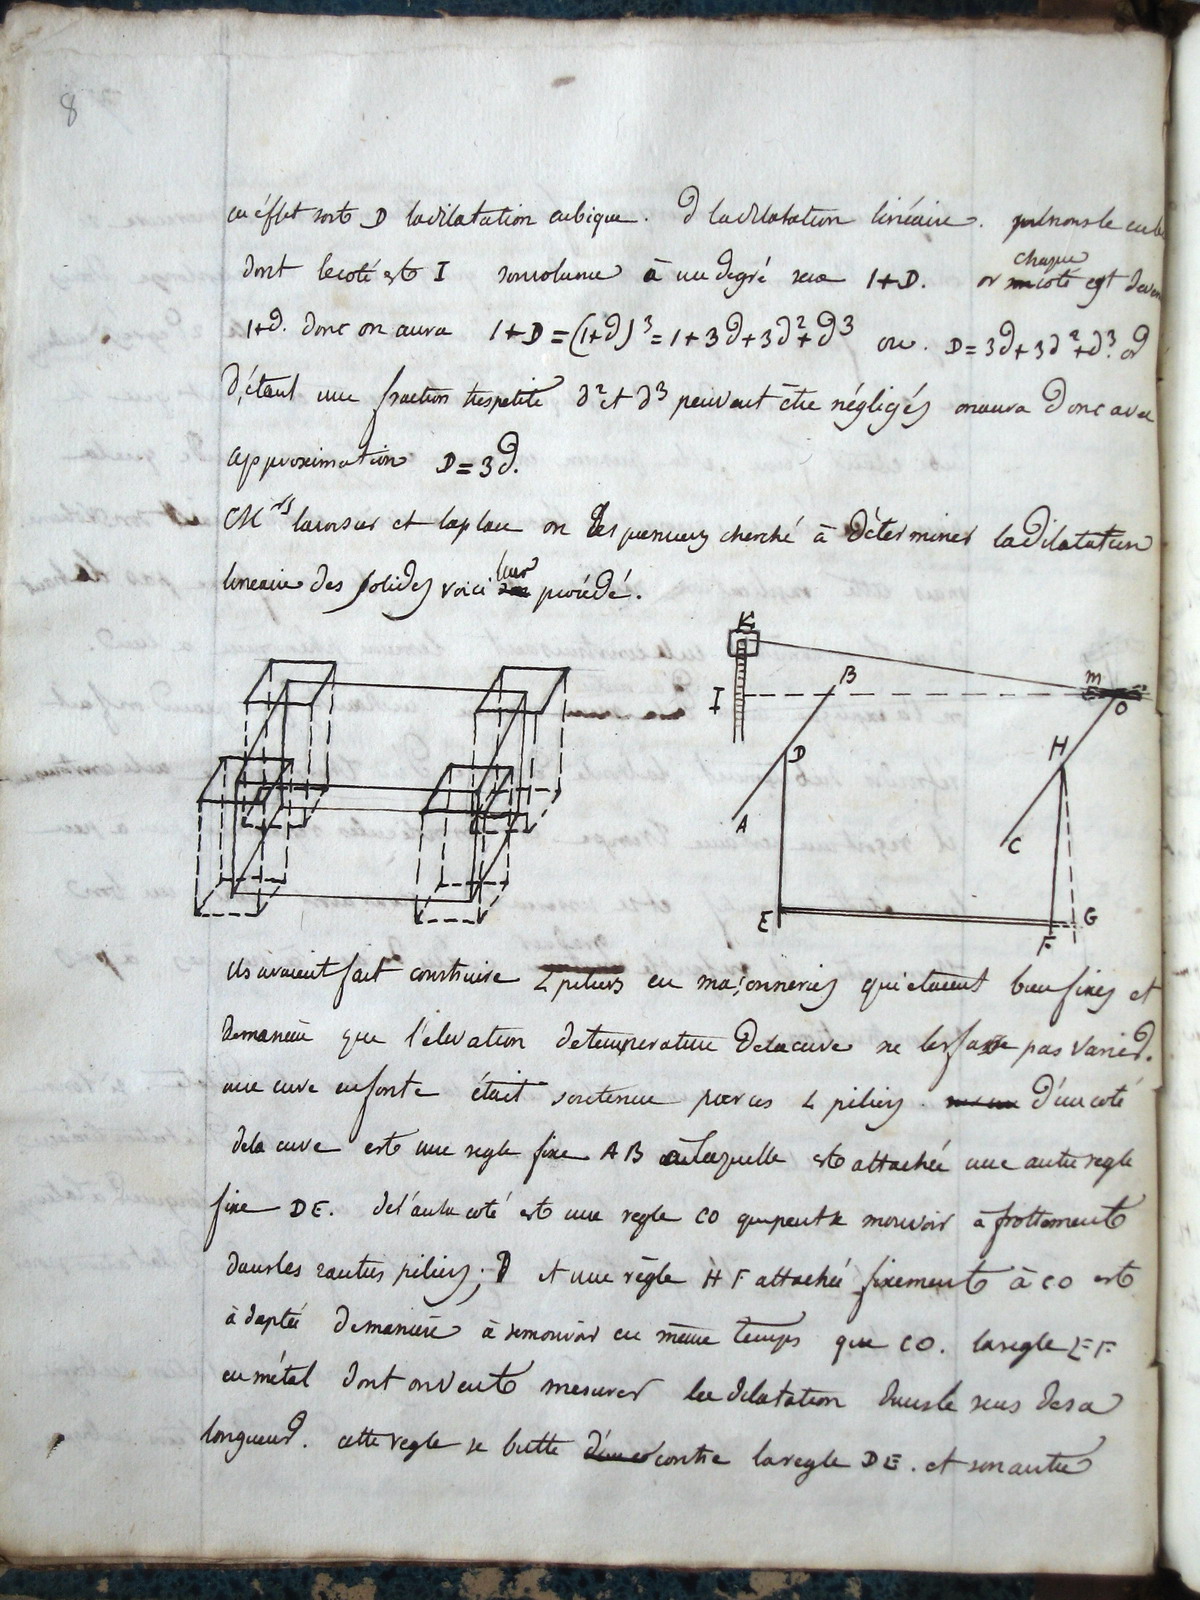 8
en éffet soit D la dilatation cubique. d la dilatation linéaire. prenons le cube
dont le coté est I son volume à un degré sera 1+D. or chaque coté est deven
1+d. donc on aura 1+D=(1+d)³=1+3d+3d²+d³ ou. D=3d+3d²+d³. or
d, étant une fraction très petite d² et d³ peuvent être négligés on aura donc avec
approximation D=3d.
MM.rs lavoisier et laplace on les premiers cherché à déterminer la dilatation
lineaire des solides voici leur procédé.
K
I
B
m
O
D
H
A
C
E
G
F
ils avaient fait construire 4 piliers en maçonneries qui étaient bien fixes et
de manière que l'élevation de température de la cuve ne les fasse pas varier.
une cuve en fonte était soutenue par ces 4 piliers. d'un coté
de la cuve est une regle fixe AB a laquelle est attachée une autre regle
fixe DE. de l'autre coté est une regle CO qui peut se mouvoir à frottement
dans les 2 autres piliers; et une règle HF attachée fixement à CO est
adaptée de manière à se mouvoir en même temps que CO. la regle EF
en métal dont on veut mesurer la dilatation dans le sens de sa
longueur. cette regle se butte contre la regle DE. et son autre